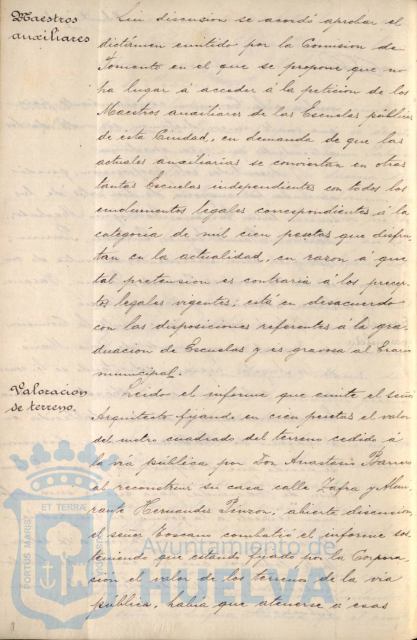 Maestros
auxiliares
Sin discusión se acordó aprobar el
dictámen emitido por la Comision de
Fomento en el que se propone que no
ha lugar á acceder á la peticion de los
Maestros auxiliares de las Escuelas públicas
de esta Ciudad, en demanda de que las
actuales auxiliarias se conviertan en otras
tantas Escuelas independientes con todos los
emolumentos legales correspondientes á la
categoría de mil cien pesetas que disfru-
tan en la actualidad, en razon á que
tal pretension es contraria á los precep-
tos legales vigentes; está en desacuerdo
con las disposiciones referentes á la gra-
duacion de Escuelas y es gravosa al Erario
municipal.
Valoración
de terreno.
Leido el informe que emite el señor
Arquitecto fijando en cien pesetas el valor
del metro cuadrado del terreno cedido á
la vía pública por Don Anastasio Barrero
al reconstruir su casa calle Zafra y Almi-
rante Hernandez Pinzon, abierta discusion,
el señor Toscano combatió el informe sos-
teniendo que estando fijado por la Corpora-
cion el valor de los terrenos de la vía
pública, había que atenerse á esas
PORTUS MARIS
ET TERRAE
CUSTODIA
Ayuntamiento de
HUELVA